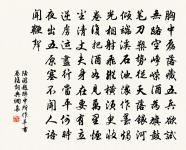 胸中磊落藏五兵欲試
無路空崢嶸酒為旗鼓
筆刀槊勢從天落銀河
傾端溪石池濃作墨燭
光相射飛縱橫須臾收
卷復把酒如見萬里煙
塵清丈夫身在要有立
逆虜運盡行當平何時
夜出五原塞不聞人語
聞鞭聲
陸游題醉中所作草書
卷後詞典網